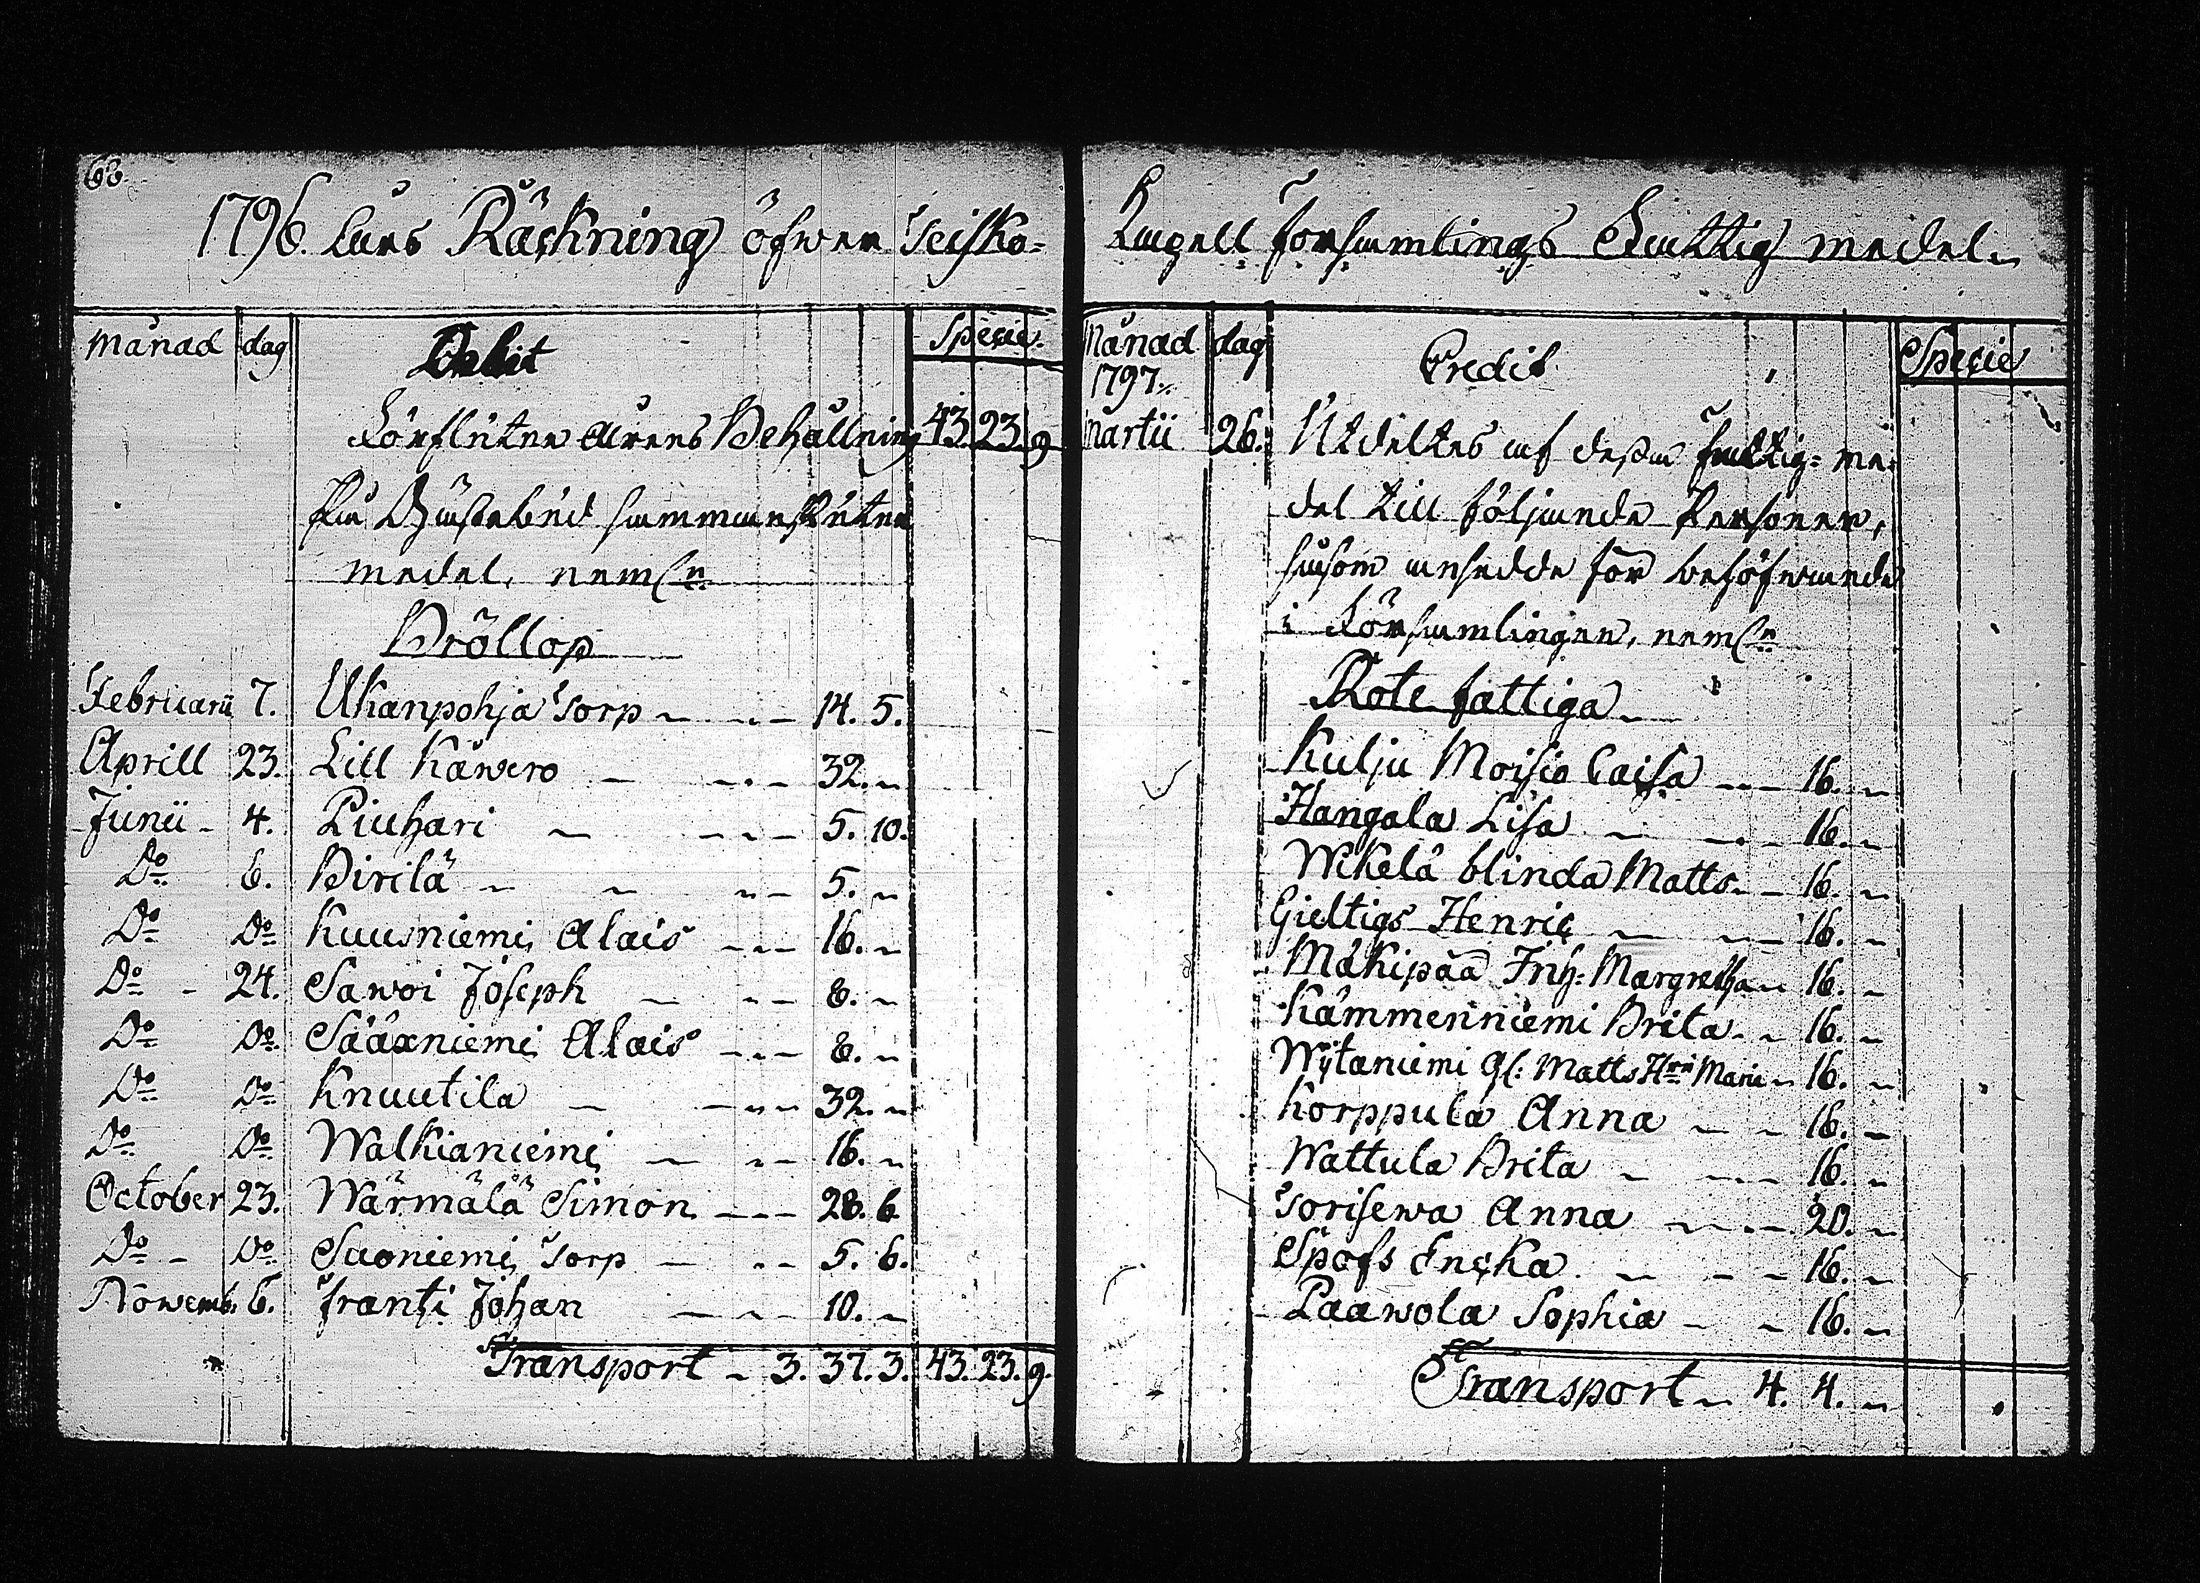 68.
1796. åars Räckning öfwer Teisko=
månad dag Debit Specie.
Förflutne Årens Behållning 43. 23. 9
På Gästebud sammanskutne
medel, neml:n
Bröllop
Februarii 7. Ukanpohja Torp 14. 5.
Aprill 23. Lill Käwero 32.
Junii 4. Piuhari 5. 10.
Do 6. Birilä 5.
Do Do Kuusniemi Alais 16.
Do 24. Sawoi Joseph 8.
Do Do Sääxniemi Alais 8.
Do Do Knuutila 32.
Do Do Walkianiemi 16.
October 23. Wärmälä Simon 28. 6
Do Do Suoniemi Torp 5. 6.
Nowemb. 6. Frantsi Johan 10.
Transport 3. 37. 3. 43. 23. 9.
Kapell Församlings Fattig medel
Månad dag Credit Specie
1797.
Martii 26. Utdeltes af dessa fattig= me=
del till följande Personer,
såsom ansedde för behöfwande
i Församlingen, neml:n
Rote fattiga
Kulju Moisio Caisa 16.
Hangala Lisa 16.
Wikelä blinda Matts 16.
Gieltigs Henric 16.
Mäkipää Inh: Margretha 16.
Kämmenniemi Brita 16.
Wytaniemi gl: Matts H:ru Maria 16.
Korppula Anna 16.
Wattula Brita 16.
Torisewa Anna 20.
Spofs Encka 16.
Paawola Sophia 16.
Transport 4. 4.